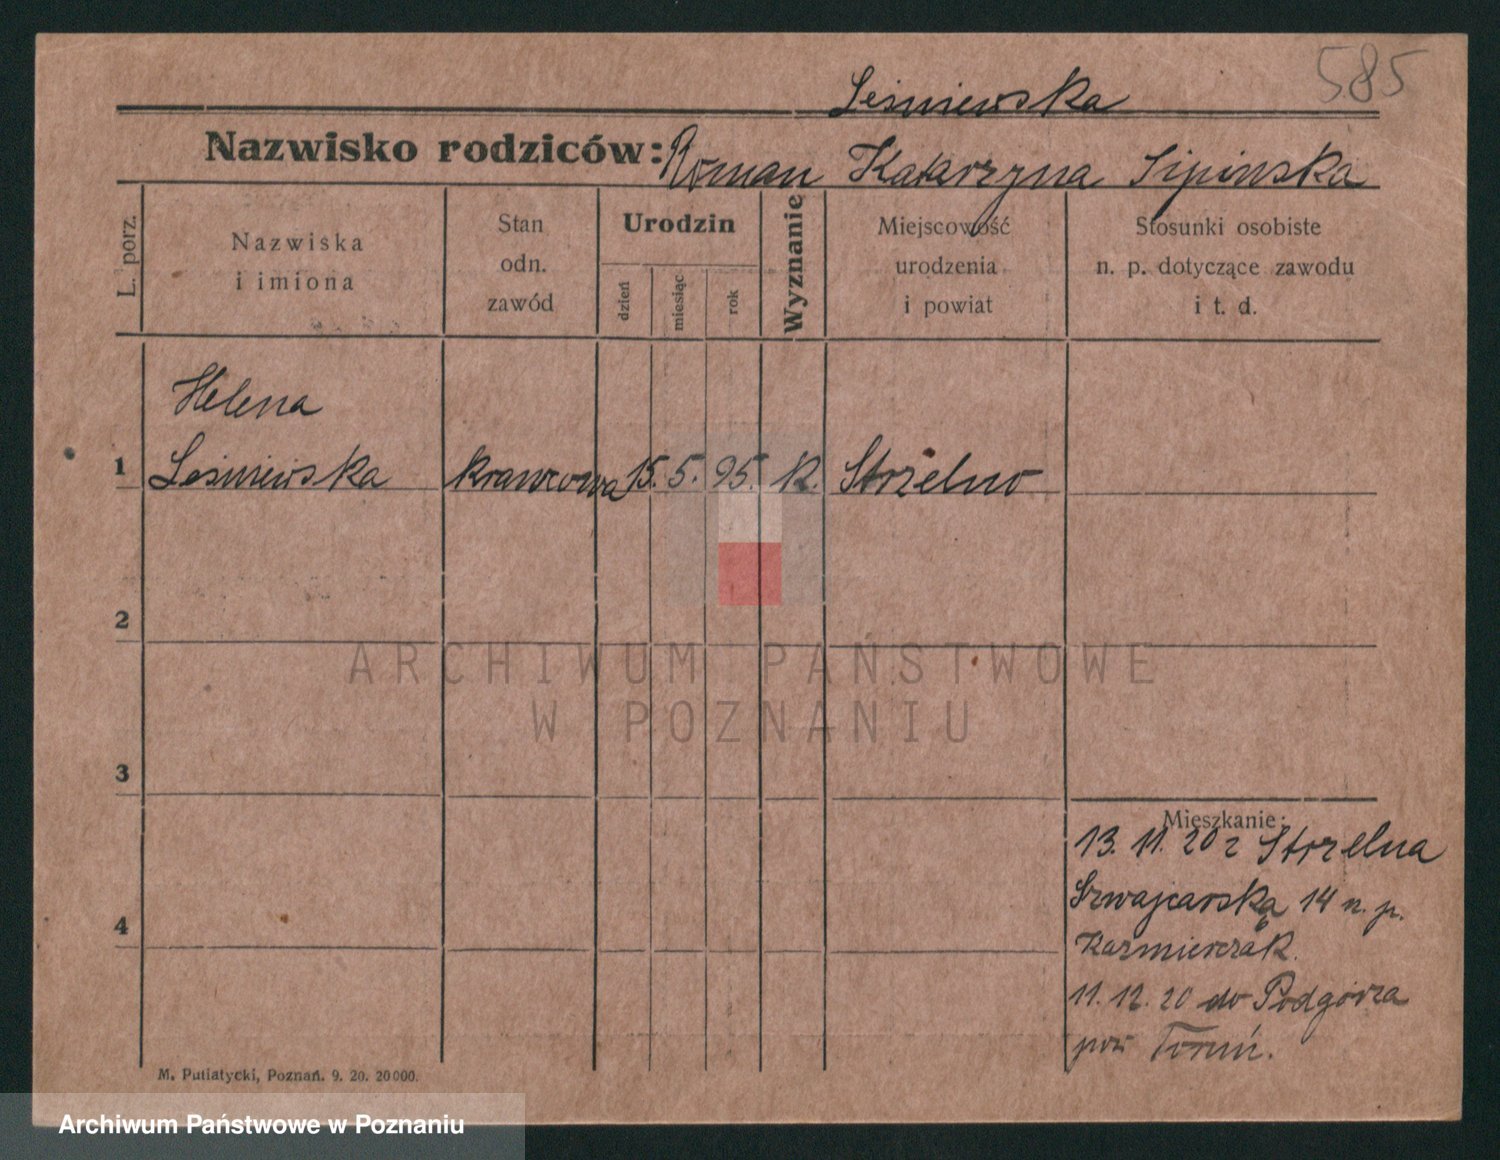 585
Leśniewska
Nazwisko rodziców: Roman Katarzyna Lipinska
L. porz.
Nazwiska
i imiona
Stan
odn.
zawód
Urodzin
dzień
miesiąc
rok
Wyznanie
Miejscowość
urodzenia
i powiat
Stosunki osobiste
n. p. dotyczące zawodu
i t. d.
Helena
1 Leśniewska krawcowa 15. 5. 95. k. Strzelno
2
3
4
ARCHIWUM PAŃSTWOWE
W POZNANIU
Mieszkanie:
13. 11. 20 z Strzelna
Szwajcarska 14 n. p.
Kazmierczak.
11. 12. 20 do Podgórza
pow Toruń.
M. Putiatycki, Poznań. 9. 20. 20000.
Archiwum Państwowe w Poznaniu